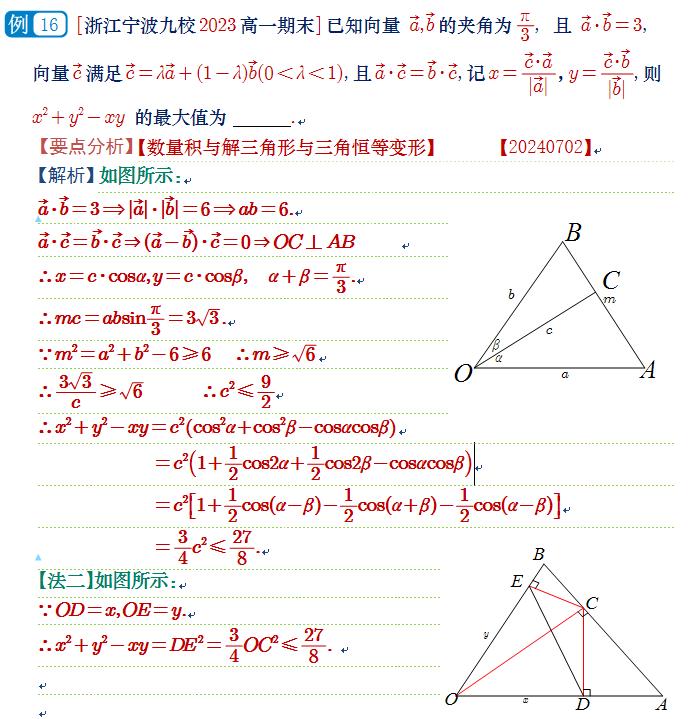 例 16 [浙江宁波九校2023高一期末]已知向量 $\vec{a},\vec{b}$ 的夹角为 $\frac{\pi}{3}$, 且 $\vec{a}\cdot\vec{b}=3$,
向量 $\vec{c}$ 满足 $\vec{c}=\lambda\vec{a}+(1-\lambda)\vec{b}(0<\lambda<1)$, 且 $\vec{a}\cdot\vec{c}=\vec{b}\cdot\vec{c}$, 记 $x=\frac{\vec{c}\cdot\vec{a}}{|\vec{a}|}$, $y=\frac{\vec{c}\cdot\vec{b}}{|\vec{b}|}$, 则
$x^2+y^2-xy$ 的最大值为 ______.
【要点分析】【数量积与解三角形与三角恒等变形】 【20240702】
【解析】如图所示:
$\vec{a}\cdot\vec{b}=3\Rightarrow|\vec{a}|\cdot|\vec{b}|=6\Rightarrow ab=6.$
$\vec{a}\cdot\vec{c}=\vec{b}\cdot\vec{c}\Rightarrow(\vec{a}-\vec{b})\cdot\vec{c}=0\Rightarrow OC\perp AB$
$\therefore x=c\cdot\cos\alpha, y=c\cdot\cos\beta, \alpha+\beta=\frac{\pi}{3}.$
$\therefore mc=ab\sin\frac{\pi}{3}=3\sqrt{3}.$
$\because m^2=a^2+b^2-6\geqslant 6$ $\therefore m\geqslant\sqrt{6}$
$\therefore\frac{3\sqrt{3}}{c}\geqslant\sqrt{6}$ $\therefore c^2\leqslant\frac{9}{2}$
$\therefore x^2+y^2-xy=c^2(\cos^2\alpha+\cos^2\beta-\cos\alpha\cos\beta)$
$=c^2(1+\frac{1}{2}\cos2\alpha+\frac{1}{2}\cos2\beta-\cos\alpha\cos\beta)$
$=c^2[1+\frac{1}{2}\cos(\alpha-\beta)-\frac{1}{2}\cos(\alpha+\beta)-\frac{1}{2}\cos(\alpha-\beta)]$
$=\frac{3}{4}c^2\leqslant\frac{27}{8}.$
B
C
m
b
c
β
α
O
a
A
【法二】如图所示:
$\because OD=x, OE=y.$
$\therefore x^2+y^2-xy=DE^2=\frac{3}{4}OC^2\leqslant\frac{27}{8}.$
B
E
C
y
O
x
D
A